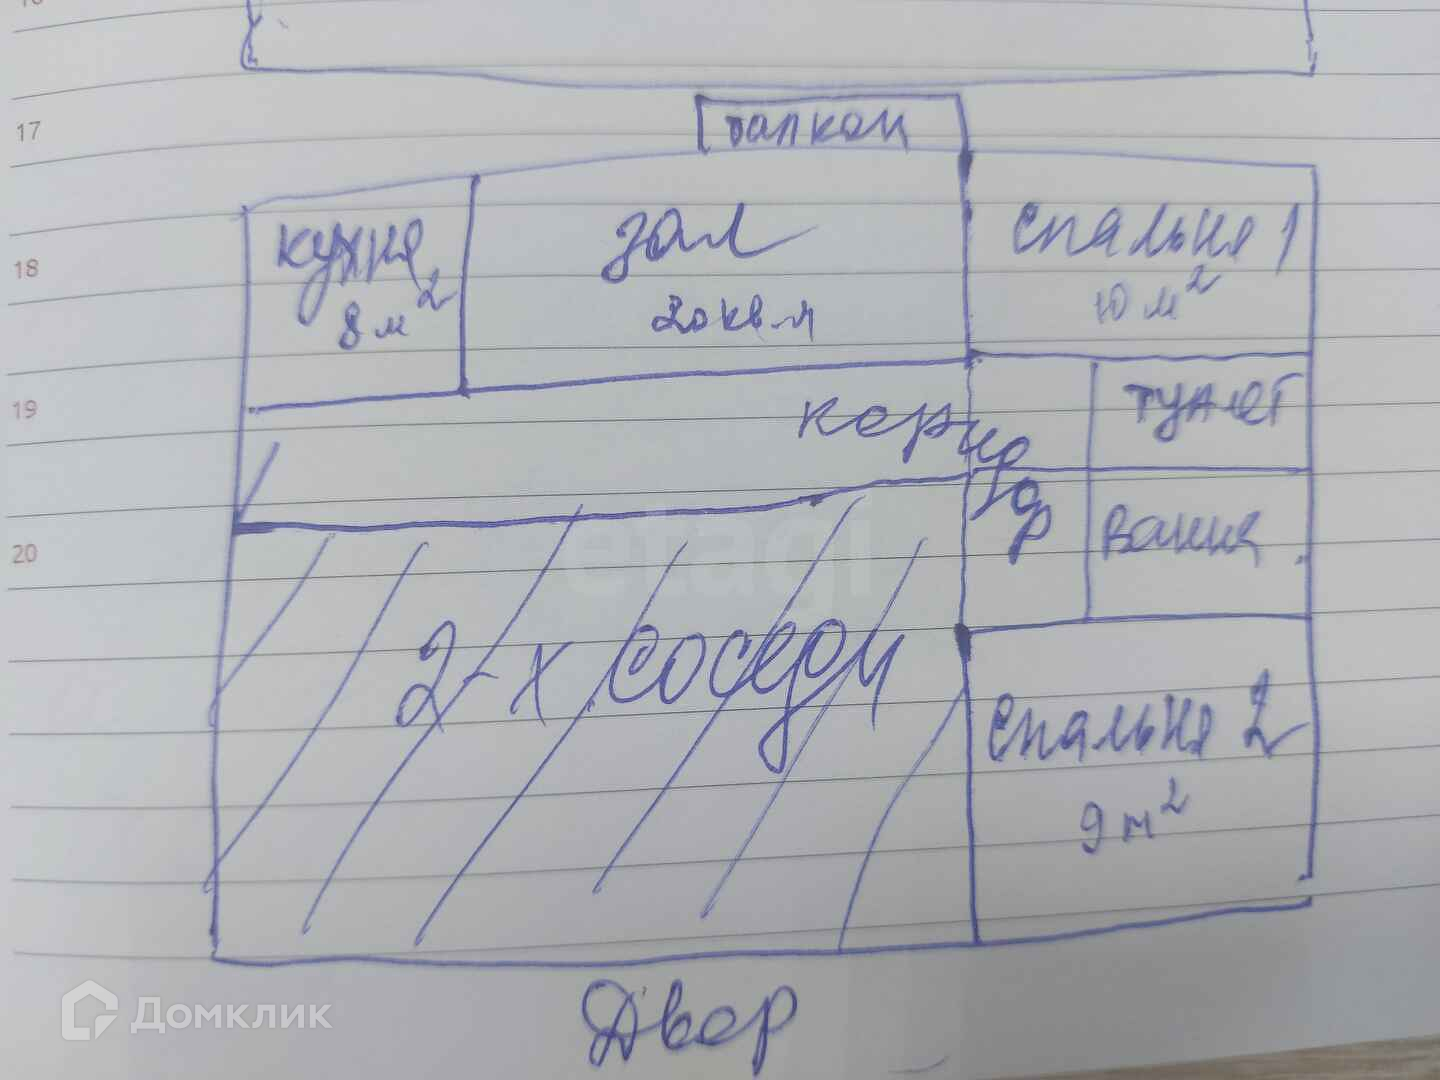 17
балкон
18
кухня
8 м²
зал
20кв.м
спальня 1
10 м²
19
коридор
туалет
20
ванна
etagi
2-х соседи
спальня 2
9 м²
Двор
Домклик